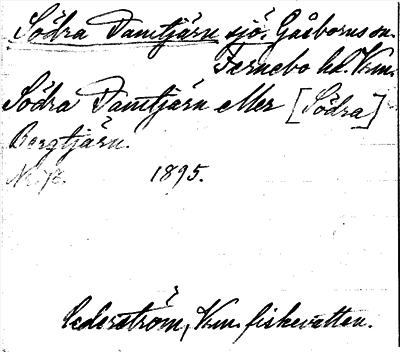 Södra Damtjärn sjö, Gåsborns sn.
Fernebo hd. Vrm.
Södra Damtjärn eller [Södra]
Bergtjärn.
1895.
Cederström, Vrm. fiskevatten.